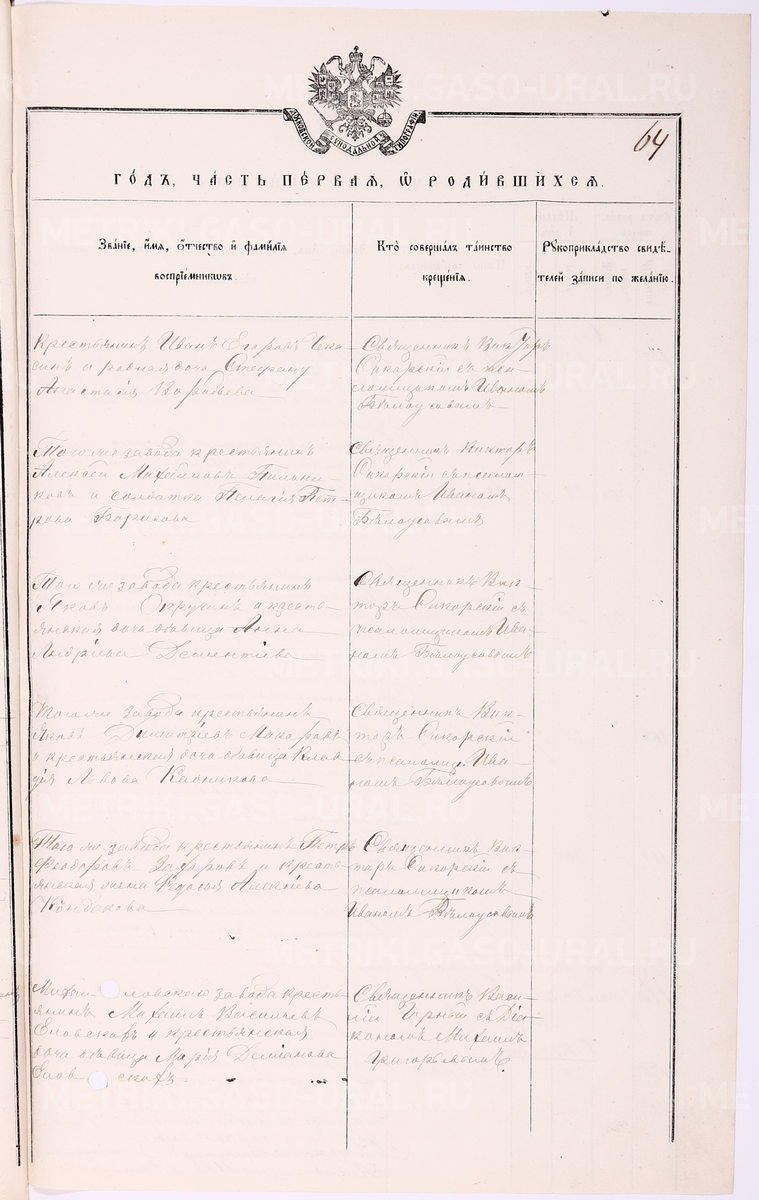 МОСКОВСКОЙ СѴНОДАЛЬНОЙ ТИПОГРАФІИ
64
ГОДЪ, ЧАСТЬ ПЕРВАЯ, Ѡ РОДИВШИХСЯ.
Званіе, имя, отчество и фамилія
воспріемниковъ.
Кто совершалъ таинство
крещенія.
Рукоприкладство свидѣ-
телей записи по желанію.
Крестьянинъ Иванъ Егоровъ
дочь
Анастасія
Священникъ Викторъ
Сикорскій съ пса-
ломщикомъ Иваномъ
Бѣлоусовымъ
Того же завода крестьянинъ
Алексѣй Михайловъ
и солдатка Пелагія Пет-
рова
Священникъ Викторъ
Сикорскій съ псалом-
щикомъ Иваномъ
Бѣлоусовымъ
Того же завода крестьянинъ
Яковъ и кресть-
янская дочь дѣвица Анна
Андреева Дементіева
Священникъ Вик-
торъ Сикорскій съ
псаломщикомъ Ива-
номъ Бѣлоусовымъ
Того же завода крестьянинъ
Яковъ Димитріевъ Макаровъ
и крестьянская дочь дѣвица Клав-
дія Львова
Священникъ Вик-
торъ Сикорскій
съ псаломщ. Ива-
номъ Бѣлоусовымъ
Того же завода крестьянинъ Петръ
Ѳеодоровъ Захаровъ и кресть-
янская Алексѣева
Кондакова
Священникъ Вик-
торъ Сикорскій съ
псаломщикомъ
Иваномъ Бѣлоусовымъ
Михай ловскаго завода кресть-
янинъ Михаилъ Василіевъ
и крестьянская
дочь дѣвица Марія Деміанова
Священникъ Васи-
лій Горный съ Діа-
кономъ Михаиломъ
Григорьевымъ
METRIKI.GASO-URAL.RU